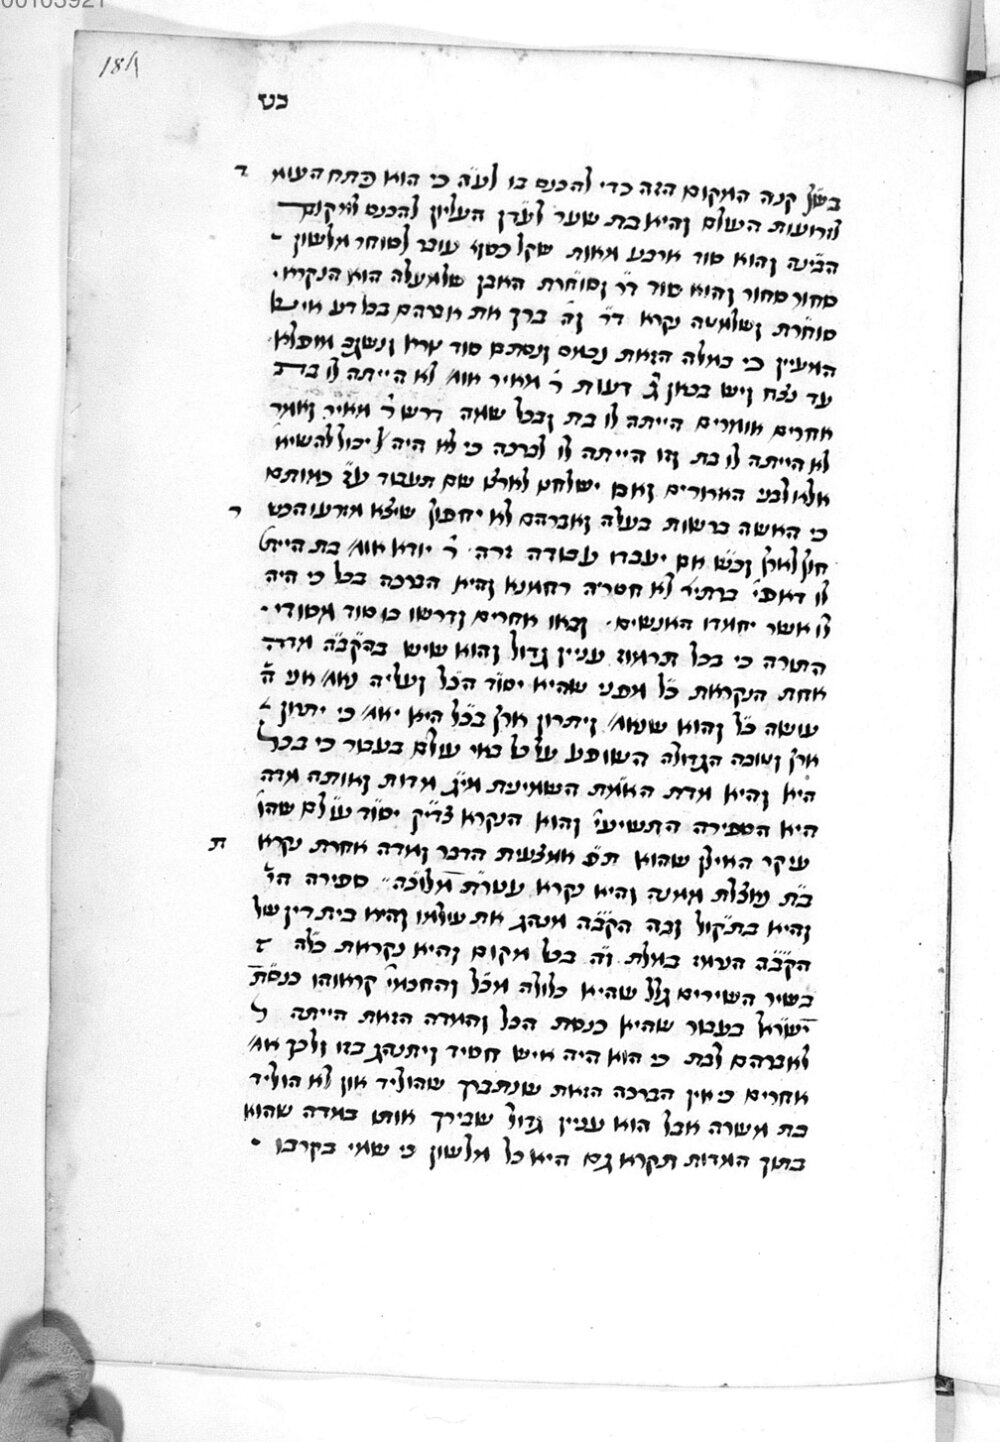 00103921
181
כט
בש״ן קנה המקום הזה כדי להכנס בו לע״ה כי הוא פתח העומ
לזרועות העולם והיא בת שער לעדן העליון להכנס למקום
הבינה והוא סוד ארבע מאות שקל כסף עובר לסוחר מלשון
סחור סחור והוא סוד ד״ר וסוחרת האבן שלמעלה הוא הנקרא
סוחרת ושלמטה נקרא ד״ר וה׳ ברך את אברהם בכל דע איש
המעיין כי במלה הזאת נכמס ונסתם סוד נורא ונשגב מופלא
עד נצח ויש בכאן ג׳ דעות ר׳ מאיר אומ׳ לא הייתה לו בת
אחרים אומרים הייתה לו בת ובכל שמה דרש ר׳ מאיר ואמר
לא הייתה לו בת וזו הייתה לו לברכה כי לא היה יכול להשיא
אלא לבני הארורים ואם ישלחנה לארץ שם תעבוד ע״ז כמותם
ר כי האשה ברשות בעלה ואברהם לא יחפוץ שיצא מזרעו הכש
חוץ לארץ וכ״ש אם יעבדו עבודה זרה ר׳ יודא אומ׳ בת הייתה
לו דאפי׳ ברתיה לא חסריה רחמנא והיא הברכה בכל כי היה
לו אשר יחמדו האנשים ובאו אחרים ודרשו בו סוד מסודי
התורה כי בכל תרמוז עניין גדול והוא שיש בהקב״ה מדה
אחת הנקראת כ״ל מפני שהיא יסוד הכל ועליה נאמ׳ אני ה׳
עושה כ״ל והוא שנאמ׳ ויתרון ארץ בכ״ל היא יאמ׳ כי יתרון
ארץ וטובה הגדולה השופע על כל באי עולם בעבור כי בכל
היא והיא מדת האמת השמינית מי״ג מדות ואותה מדה
היא הספירה התשיעי׳ והוא הנקרא צדיק יסוד עולם שהו׳
ת עיקר האילן שהוא ת״פ אמצעית הדבר ומדה אחרת נקרא
ב״ת נאצלת ממנה והיא נקרא עטרת מלוכה ספירה הי׳
והיא בת קול ובה הקב״ה מנהג את עולמו והיא בית דין של
הקב״ה הנרמז במלת וה׳ בכל מקום והיא נקראת כלה
בשיר השירים גלל שהיא כלולה מכל והחכמי׳ קראוהו כנסת
ישראל בעבור שהיא כנסת הכל והמדה הזאת הייתה
לאברהם לבת כי הוא היה איש חסיד ויתנהג בזו ולכך אמ׳
אחרים כי אין הברכה הזאת שנתברך שהוליד או לא הוליד
בת משרה אבל הוא עניין גדול שבירך אותו במדה שהוא
בתוך המדות תקרא גם היא כל מלשון כי שמי בקרבו